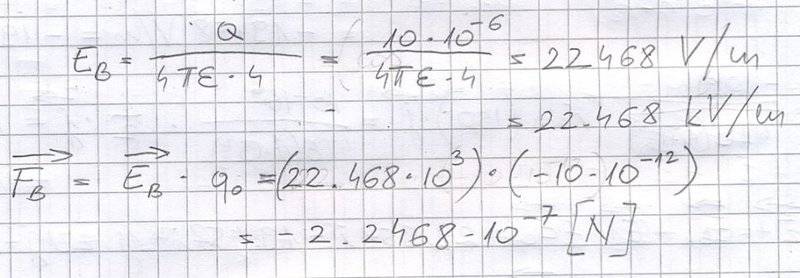 E_B = Q / (4πε · 4) = 10 · 10^-6 / (4πε · 4) = 22468 V/m
= 22.468 kV/m
F_B→ = E_B→ · q₀ = (22.468 · 10^3) · (-10 · 10^-12)
= -2.2468 - 10^-7 [N]